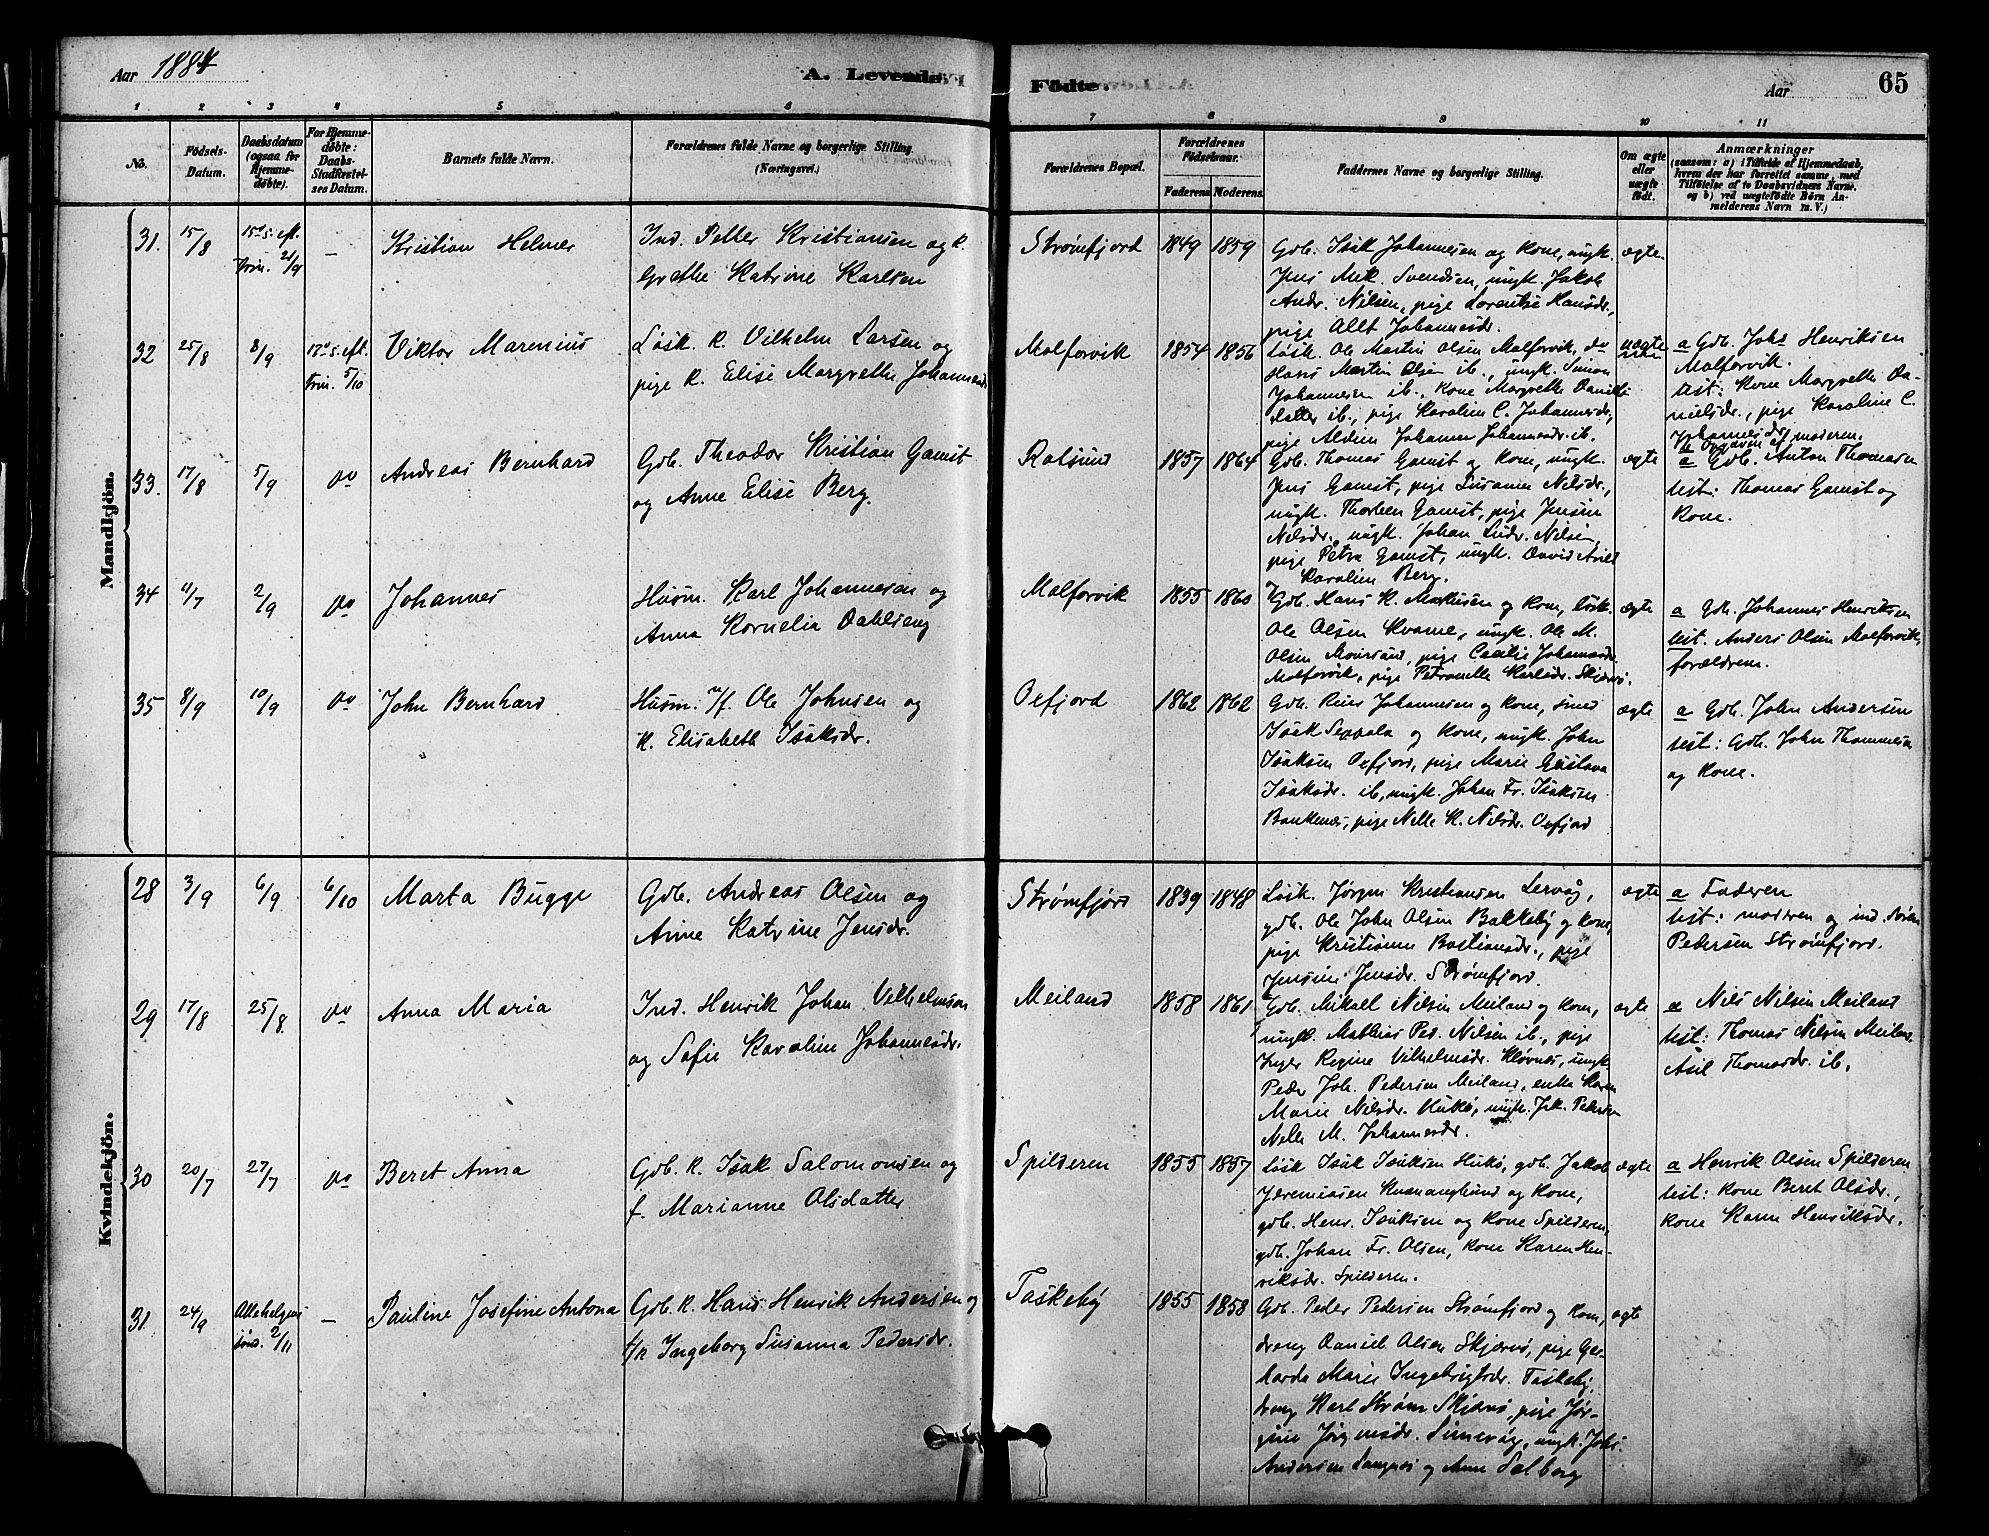 Aar 1884
A. Levende
Födte.
Aar
65
1 2 3 4 5 6 7 8 9 10 11
No.
Födsels-Datum.
Daabsdatum (ogsaa for Hjemmedöbte).
For Hjemmedöbte: Daabs-Stadfæstelses Datum.
Barnets fulde Navn.
Forældrenes fulde Navne og borgerlige Stilling. (Næringsvei.)
Forældrenes Bopæl.
Forældrenes Födselsaar.
Faderens. Moderens.
Faddernes Navne og borgerlige Stilling.
Om ægte eller uægte födt.
Anmærkninger
(saasom: a) i Tilfælde af Hjemmedaab,
hvem der har forrettet samme, med
Tilföielse af to Daabsvidners Navne.
og b) ved uægtefödte Börn An-
melderens Navn m. V.)
Mandkjön.
31. 15/8 15de S. eft. trin. 21/9 – Kristian Helmer
Ind. Petter Kristiansen og k.
Grethe Katrine Karlsen
Strømfjord 1849 1859
Gdb. Isak Johannesen og kone, ungk.
Jens Mek. Svendsen, ungk. Jakob
Andr. Nilsen, pige Lorentse Hansdr.,
pige Allt Johannesdr.
ægte.
32 25/8 8/9 17de S. eft. trin. 5/10 Viktor Marenius
Løsk. K. Vilhelm Larsen og
pige K. Elise Margrethe Johannesdr
Malforvik 1854 1856
Løsk. Ole Martin Olsen Malforvik, do
Hans Martin Olsen ib., ungk. Simon
Johannesen ib., kone Margrethe Daniels
datter ib., pige Karoline C. Johannesdr,
pige Aldien Johanna Johannesdr. ib.
uægte
a Gdb. Johs Henriksen
Malforvik.
test: Kone Margrethe Da-
nielsdr., pige Karoline C.
Johannesdr.
b Opgaven af moderen.
33. 17/8 5/9 do Andreas Bernhard
Gdb. Theodor Kristian Gamst
og Anne Elise Berg.
Rotsund 1857 1864
Gdb. Thomas Gamst og kone, ungk.
Jens Gamst, pige Susanna Nilsdr.,
ungk. Thorsten Gamst, pige Jensine
Nilsdr., ungk. Johan Ludv. Nilsen,
pige Petra Gamst, ungk. David
og Karoline Berg.
ægte
a Gdb. Anton Thomasen
test: Thomas Gamst og
kone.
34 11/7 2/9 do Johannes
Husm. Karl Johannesen og
Anna Kornelia Dahleng
Malforvik 1855 1860
Gdb. Hans K. Mathisen og kone, løsk.
Ole Olsen Kvame, ungk. Ole M.
Olsen Maursund, pige Cecilie Johannesdr.
Malforvik, pige Petronelle Karlsdr. Skjervø.
ægte
a Gdb. Johannes Henriksen
test. Anders Olsen Malforvik,
forældrene.
35 8/9 10/9 do John Bernhard
Husm. n/f. Ole Johnsen og
K. Elisabeth Isaksdr.
Oxfjord 1862 1862
Gdb. Johannesen og kone, smed
Isak Seppala og kone, ungk. John
Isaksen Oxfjord, pige Marie Gustava
Isaksdr. ib., ungk. Johan Fr. Isaksen
Bankenes, pige Nelle K. Nilsdr. Oxfjord
ægte
a Gdb. John Andersen
test: Gdb. John Thommesen
og kone.
Kvindekjön.
28 3/9 6/9 6/10 Marta Bugge
Gdb. Andreas Olsen og
Anne Katrine Jensdr.
Strømfjord 1839 1848
Løsk. Jørgen Kristiansen Lervåg,
gdb. Ole John Olsen Bakkeby og kone,
pige Kristianna Bastiansdr., pige
Jensine Jensdr. Strømfjord.
ægte
a Faderen
test: moderen og ind. Søren
Pedersen Strømfjord.
29 17/8 25/8 do Anna Maria
Ind. Henrik Johan Vilhelmsen
og Sofie Karoline Johannesdr.
Meiland 1858 1861
Gdb. Mikael Nilsen Meiland og kone,
ungk. Mathias Ped. Nilsen ib., pige
Inger Regine Vilhelmsdr. Kløvnes, ungk.
Peder Joh. Pedersen Meiland, enke Karen
Marie Nilsdr. Hukø, ungk. Joh. Pedersen
Nelle M. Johannesdr.
ægte
a Nils Nilsen Meiland
test: Thomas Nilsen Meiland,
Asil Thomasdr. ib.
30 20/7 27/7 do Beret Anna
Gdb. K. Isak Salomonsen og
f. Marianne Olsdatter
Spilderen 1855 1857
Løsk Isak Isaksen Hukø, gdb. Jakob
Jeremiasen Kvænangsund og kone,
gdb. Henr. Isaksen og kone Spilderen,
gdb. Johan Fr. Olsen, kone Karen Hen-
riksdr. Spilderen.
ægte
a Henrik Olsen Spilderen
test: kone Beret Olsdr.,
kone Karen Henriksdr.
31. 24/9 Allehelgens sønd. 2/11 – Pauline Josefine Antona
Gdb. K. Hans Henrik Andersen og
f/k Ingeborg Susanna Pedersdr.
Taskeby 1855 1858
Gdb. Peder Pedersen Strømfjord og kone,
dreng Daniel Olsen Skjervø, pige Ger-
harda Marie Ingebrigtsdr. Taskeby,
dreng Karl Strøm Skjervø, pige Jør-
gine Jørgensdr. Simavåg, ungk. Johs.
Andersen og Anne Solborg
ægte